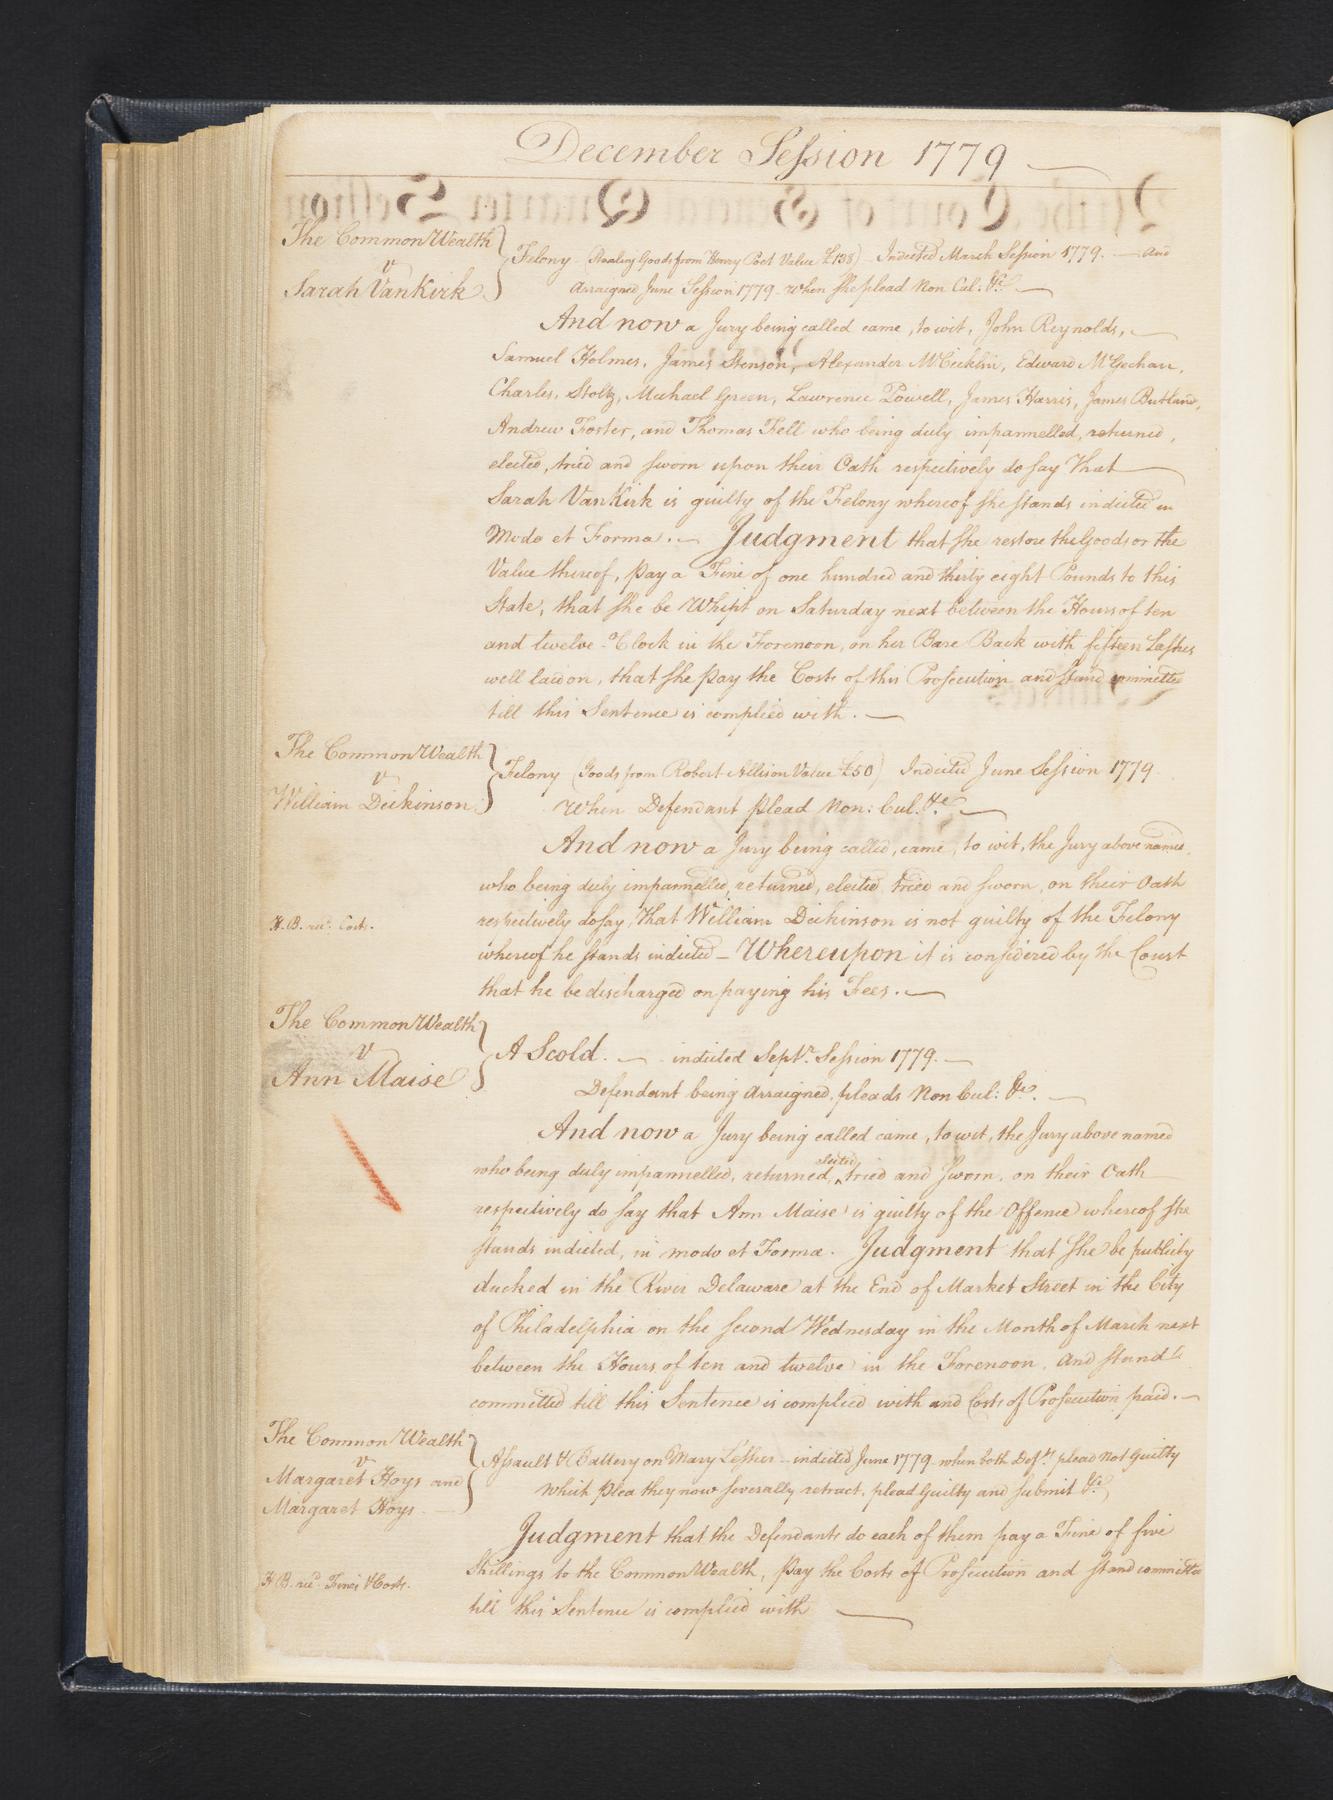 December Session 1779
The CommonWealth
v
Sarah VanKirk
Felony (Stealing Goods from Henry Poet Value £138) Indicted March Session 1779. — And
Arraigned June Session 1779 when she plead Non Cul: &c
And now a Jury being called came, to wit, John Reynolds,
Samuel Holmes, James Stenson, Alexander McCecklin, Edward McGechan,
Charles Stoltz, Michael Green, Lawrence Powell, James Harris, James Butland,
Andrew Foster, and Thomas Fell who being duly impannelled, returned,
elected, tried and sworn upon their Oath respectively do say That
Sarah VanKirk is guilty of the Felony whereof she stands indicted in
Modo et Forma. — Judgment that she restore the Goods or the
Value thereof, Pay a Fine of one hundred and thirty eight Pounds to this
State, that she be Whipt on Saturday next between the Hours of ten
and twelve oClock in the Forenoon, on her Bare Back with fifteen Lashes
well laid on, that she pay the Costs of this Prosecution and stand committed
till this Sentence is complied with. —
The CommonWealth
v
William Dickinson
Felony (Goods from Robert Allison Value £50) Indicted June Session 1779
When Defendant plead Non: Cul. &c
And now a Jury being called, came, to wit, the Jury above named,
who being duly impannelled, returned, elected, tried and sworn, on their Oath
H. B. recd. Costs.
respectively do say, That William Dickinson is not guilty of the Felony
whereof he stands indicted — Whereupon it is considered by the Court
that he be discharged on paying his Fees. —
The CommonWealth
v
Ann Maise
A Scold. — indicted Septr. Session 1779. —
Defendant being Arraigned, pleads Non Cul: &c. —
And now a Jury being called came, to wit, the Jury above named
who being duly impannelled, returned, elected, tried and sworn, on their Oath
respectively do say that Ann Maise is guilty of the Offence whereof she
stands indicted, in modo et Forma. Judgment that she be publicly
ducked in the River Delaware at the End of Market Street in the City
of Philadelphia on the second Wednesday in the Month of March next
between the Hours of ten and twelve in the Forenoon, And stand
committed till this Sentence is complied with and Costs of Prosecution paid. —
The CommonWealth
v
Margaret Hoys and
Margaret Hoys
Assault & Battery on Mary Lesher — indicted June 1779 when both Defts. plead Not Guilty
which Plea they now severally retract, plead Guilty and submit &c
Judgment that the Defendants do each of them pay a Fine of five
H B. recd. Fines & Costs.
Shillings to the CommonWealth, Pay the Costs of Prosecution and stand committed
till this Sentence is complied with